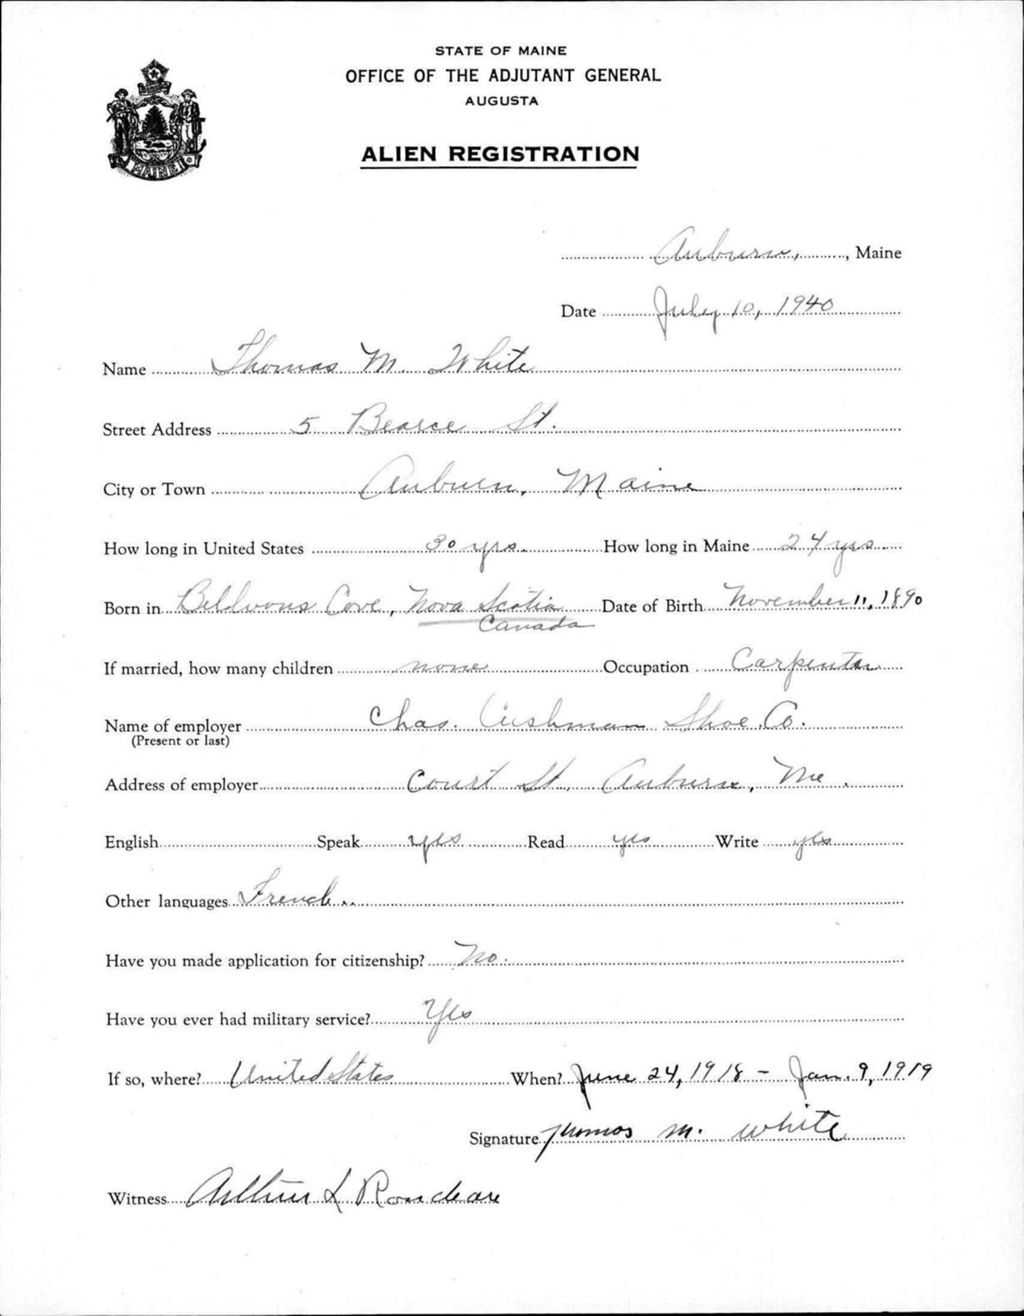 STATE OF MAINE
OFFICE OF THE ADJUTANT GENERAL
AUGUSTA
ALIEN REGISTRATION
MAINE
Auburn, , Maine
Date July 10, 1940
Name Thomas M. White
Street Address 5 Bearce St.
City or Town Auburn, Maine
How long in United States 30 yrs. How long in Maine 24 yrs.
Born in Cove, Nova Scotia Date of Birth November 11, 1890
Canada
If married, how many children none Occupation Carpenter
Name of employer Chas. Cushman Shoe Co.
(Present or last)
Address of employer Court St. Auburn, Me.
English Speak yes Read yes Write yes
Other languages French
Have you made application for citizenship? No.
Have you ever had military service? Yes
If so, where? United States When? June 24, 1918 - Jan. 9, 1919
Signature Thomas M. White
Witness Arthur L